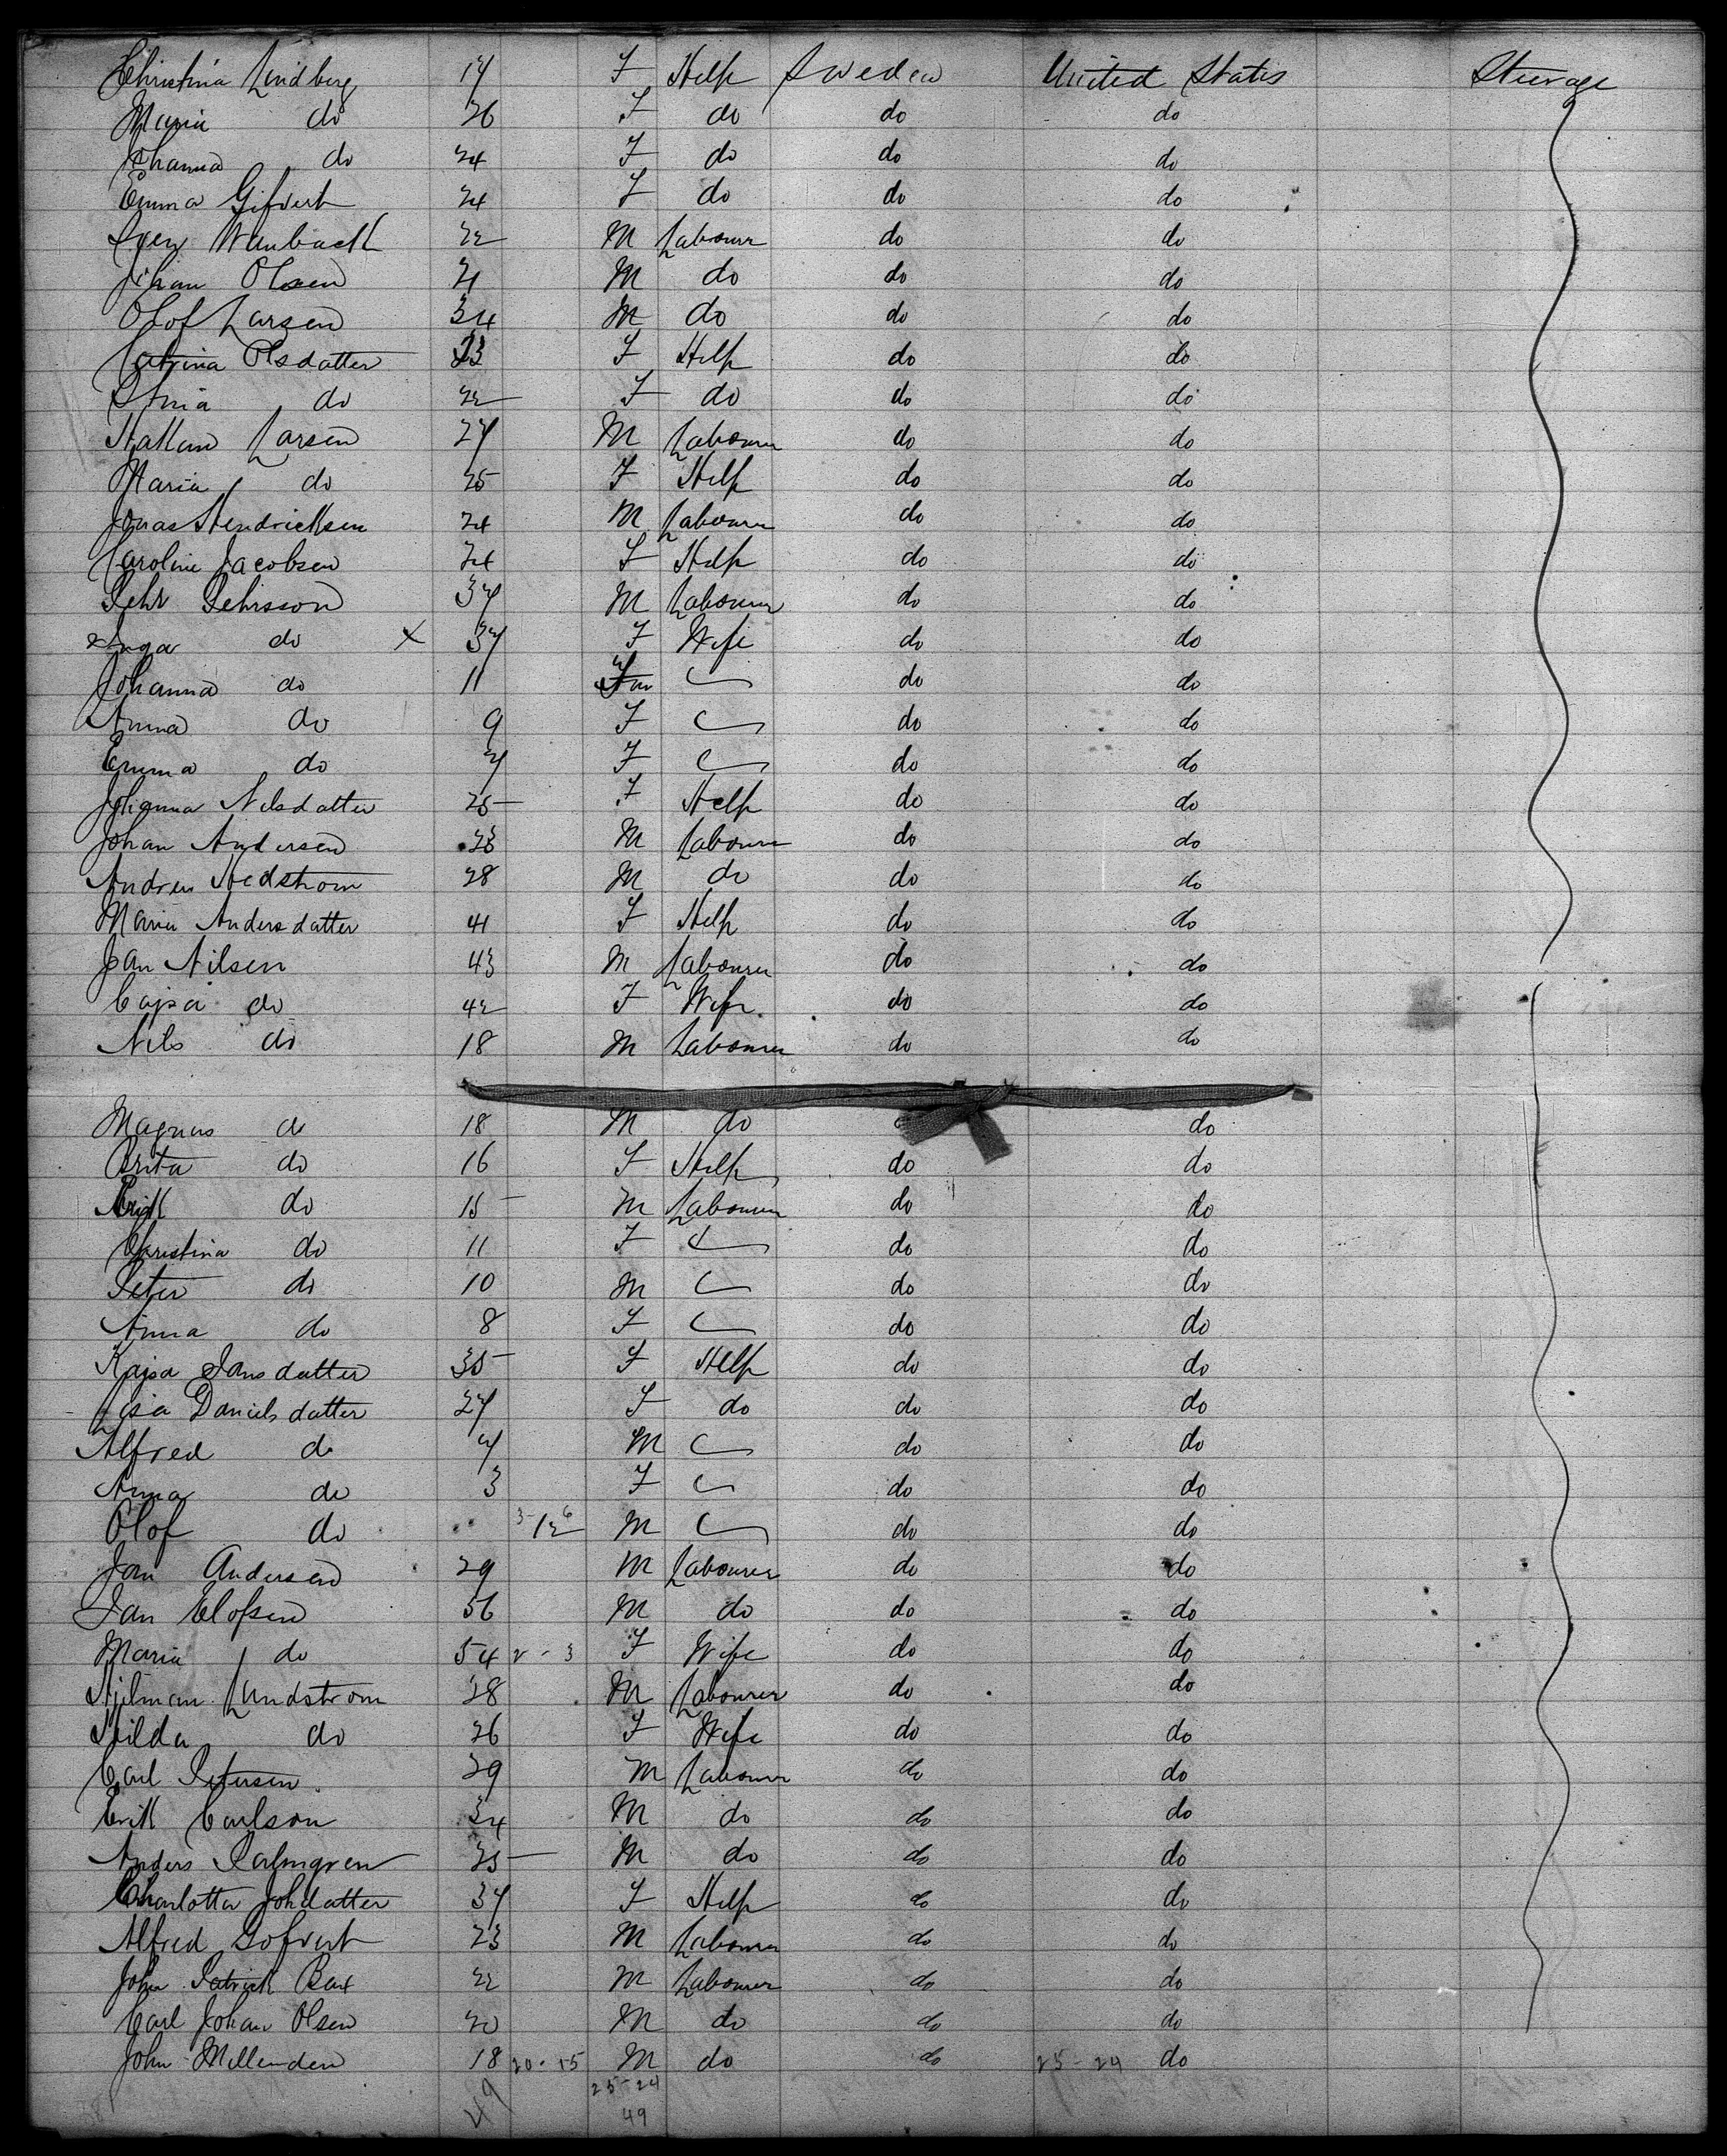 Christina Lindberg 17 F Help Sweden United States Steerage
Maria do 26 F do do do
Johanna do 24 F do do do
Emma Gifvert 24 F do do do
Sven 22 M Labourer do do
Johan Olsen 21 M do do do
Olof Larsen 34 M do do do
Catrina Olsdatter 23 F Help do do
Stina do 22 F do do do
Hakan Larsen 27 M Labourer do do
Maria do 25 F Help do do
Jonas Hendricksen 24 M Labourer do do
Caroline Jacobsen 24 F Help do do
Pehr Pehrsson 37 M Labourer do do
x Inga do x 37 F Wife do do
Johanna do 11 F do do
Anna do 9 F do do
Emma do 7 F do do
Johanna Nilsdatter 25 F Help do do
Johan Andersen 23 M Labourer do do
Andrew Hedstrom 28 M do do do
Maria Andersdatter 41 F Help do do
Jan Nilsen 43 M Labourer do do
Cajsa do 42 F Wife do do
Nils do 18 M Labourer do do
Magnus do 18 M do do
Brita do 16 F Help do do
Erik do 15 M Labourer do do
Christina do 11 F do do
Peter do 10 M do do
Anna do 8 F do do
Kajsa Jansdatter 35 F Help do do
Lisa Danielsdatter 27 F do do do
Alfred do 7 M do do
Anna do 3 F do do
Olof do M do do
Jan Andersen 29 M Labourer do do
Jan Elofsen 56 M do do do
Maria do 54 2 - 3 F Wife do do
Hjelmam Lundstrom 28 M Labourer do do
Hilda do 26 F Wife do do
Carl Petersen 29 M Labourer do do
Erik Carlson 34 M do do do
Anders Palmgren 25 M do do do
Charlotta Johdatter 37 F Help do do
Alfred Gofvert 23 M Labourer do do
John Patrick 22 M Labourer do do
Carl Johan Olsen 20 M do do do
John Mellenden 18 20 - 15 M do do 25 - 24 do
49 25 - 24
49